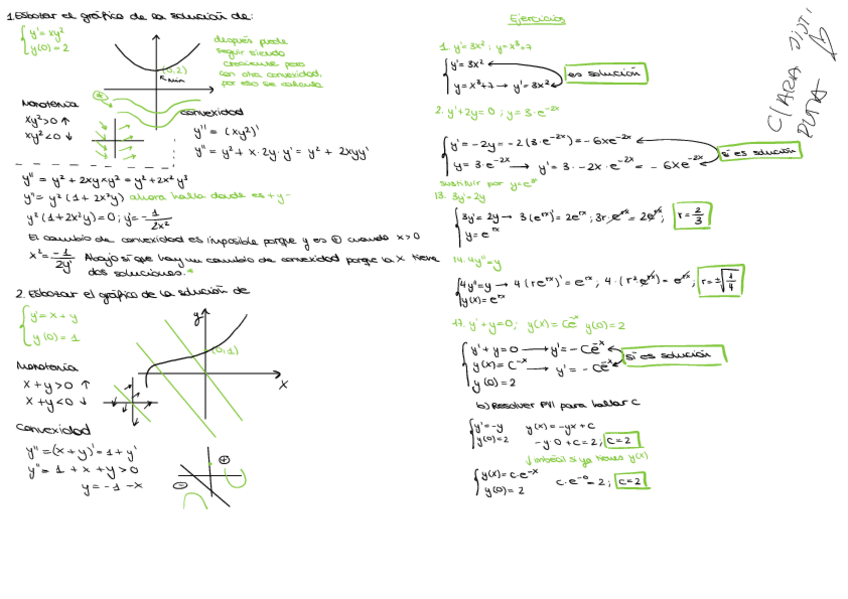 1. Esbozar el gráfico de la solución de:
y'= xy²
y(0) = 2
(0,2)
min
después puede
seguir siendo
creciente pero
con otra convexidad,
por eso se calcula
Monotonía
xy²>0 ↑
xy²<0 ↓
convexidad
y'' = (xy²)'
y'' = y² + x·2y·y' = y² + 2xyy'
y'' = y² + 2xy·xy² = y² + 2x²y³
y'' = y² (1 + 2x²y) ahora halla donde es + y -
y² (1+2x²y) = 0 ; y = -1/2x²
El cambio de convexidad es imposible porque y es ⊕ cuando x > 0
x² = -1/2y Abajo sí que hay un cambio de convexidad porque la x tiene
dos soluciones.*
2. Esbozar el gráfico de la solución de
y' = x + y
y(0) = 1
y
(0,1)
x
Monotonía
x + y > 0 ↑
x + y < 0 ↓
Convexidad
y'' = (x + y)' = 1 + y'
y'' = 1 + x + y > 0
y = -1 - x
⊕
⊖
Ejercicios
1. y' = 3x² ; y = x³+7
y' = 3x²
y = x³+7 → y' = 3x²
es solución
2. y'+2y = 0 ; y = 3·e^-2x
y' = -2y = -2(3·e^-2x) = -6xe^-2x
y = 3·e^-2x → y' = 3·-2x·e^-2x = -6xe^-2x
si es solución
sustituir por y = e^rx
13. 3y' = 2y
3y' = 2y → 3(e^rx) = 2e^rx ; 3r·e^rx = 2e^rx ; r = 2/3
y = e^rx
14. 4y'' = y
4y'' = y → 4(re^rx)' = e^rx ; 4·(r²e^rx) = e^rx ; r = ±√1/4
y(x) = e^rx
17. y' + y = 0 ; y(x) = Ce^-x y(0) = 2
y' + y = 0 → y' = -Ce^-x
y(x) = C^-x → y' = -Ce^-x
y(0) = 2
si es solución
b) Resolver PVI para hallar C
y' = -y y(x) = -yx + C
y(0) = 2 -y·0 + C = 2 ; C = 2
si ya tienes y(x)
y(x) = C·e^-x
y(0) = 2 C·e^-0 = 2 ; C = 2
CLARA
PUTA